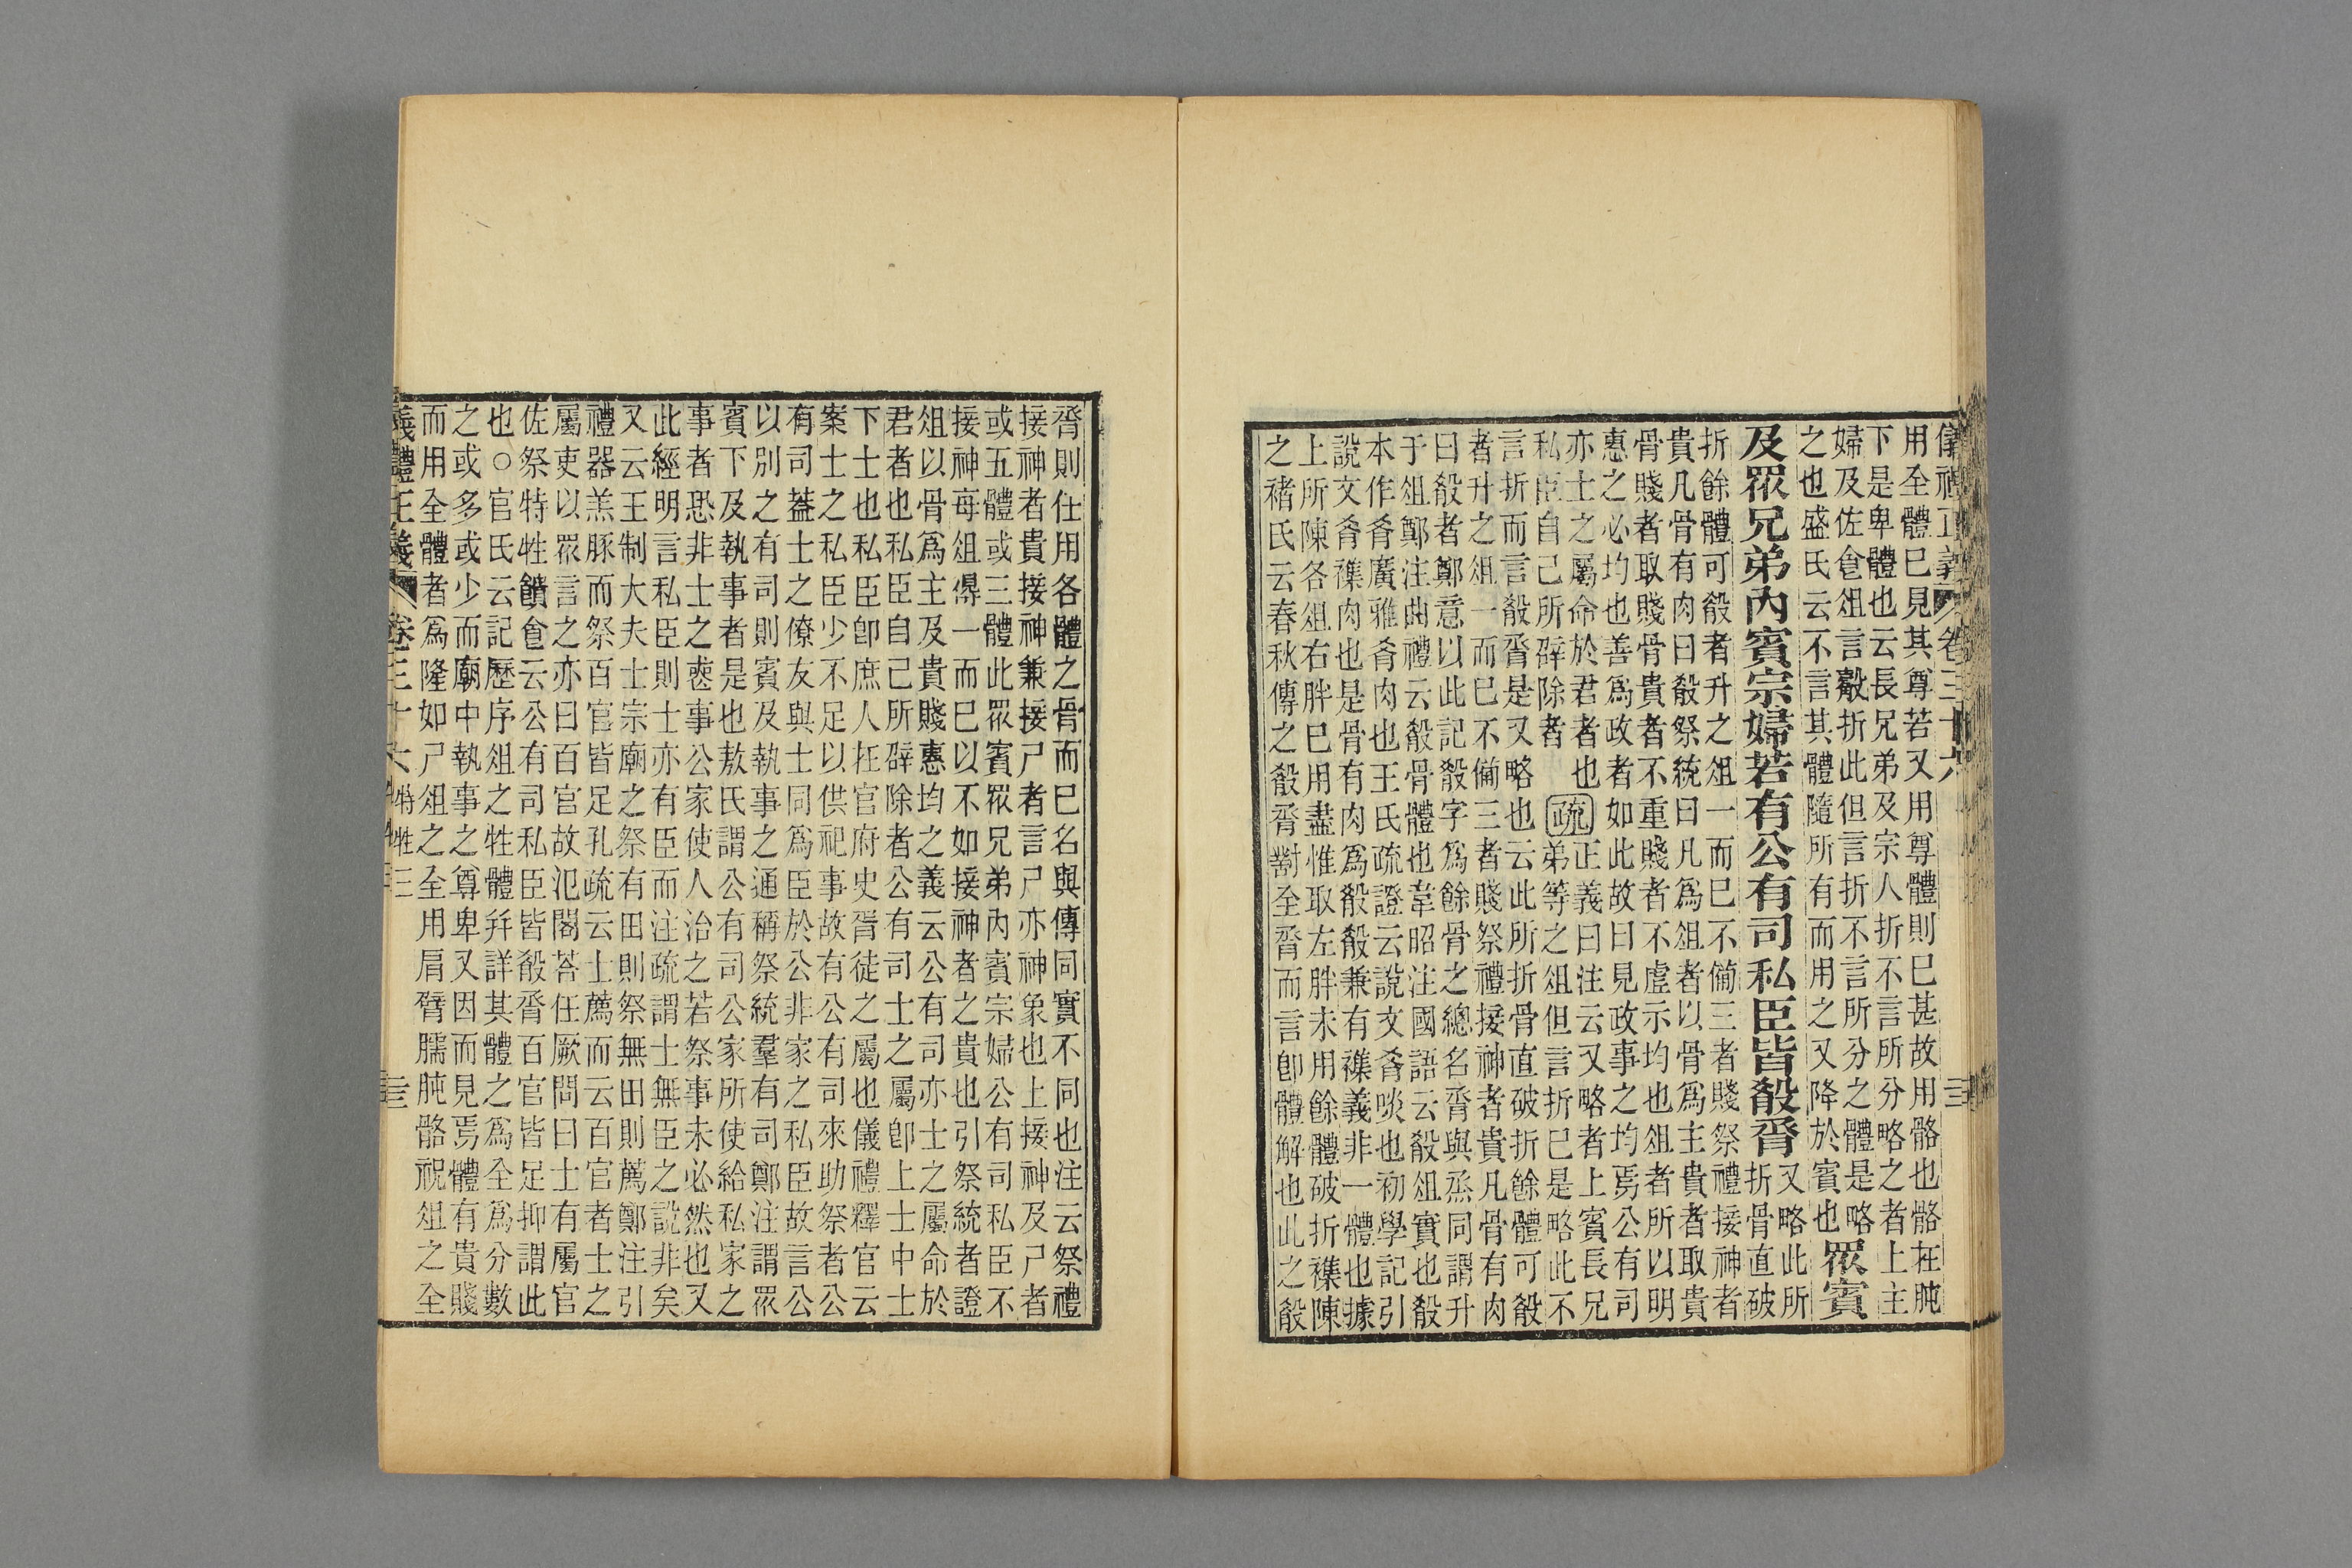 儀禮正義 卷三十六 三
用全體巳見其尊若又用尊體則巳甚故用骼也骼在肫
下是卑體也云長兄弟及宗人折不言所分略之者上主
婦及佐食俎言觳折此但言折不言所分之體是略
之也盛氏云不言其體隨所有而用之又降於賓也
眾賓
及眾兄弟內賓宗婦若有公有司私臣皆殽脀
又略此所
折骨直破
折餘體可殽者升之俎一而巳不備三者賤祭禮接神者
貴凡骨有肉曰殽祭統曰凡爲俎者以骨爲主貴者取貴
骨賤者取賤骨貴者不重賤者不虛示均也俎者所以明
惠之必均也善爲政者如此故曰見政事之均焉公有司
亦士之屬命於君者也
私臣自己所辟除者
疏
正義曰注云又略者上賓長兄
弟等之俎但言折巳是略此不
言折而言殽脀是又略也云此所折骨直破折餘體可殽
者升之俎一而巳不備三者賤祭禮接神者貴凡骨有肉
曰殽者鄭意以此記殽字爲餘骨之總名脀與烝同謂升
于俎鄭注曲禮云殽骨體也韋昭注國語云殽俎實也殽
本作肴廣雅肴肉也王氏疏證云說文肴啖也初學記引
說文肴襍肉也是骨有肉爲殽殽兼有襍義非一體也據
上所陳各俎右胖巳用盡惟取左胖未用餘體破折襍陳
之褚氏云春秋傳之殽脀對全脀而言卽體解也此之殽
脀則仕用各體之骨而巳名與傳同實不同也注云祭禮
接神者貴接神兼接尸者言尸亦神象也上接神及尸者
或五體或三體此眾賓眾兄弟內賓宗婦公有司私臣不
接神每俎得一而巳以不如接神者之貴也引祭統者證
俎以骨爲主及貴賤惠均之義云公有司亦士之屬命於
君者也私臣自己所辟除者公有司士之屬卽上士中士
下士也私臣卽庶人在官府史胥徒之屬也儀禮釋官云
案士之私臣少不足以供祀事故有公有司來助祭者公
有司蓋士之僚友與士同爲臣於公非家之私臣故言公
以別之有司則賓及執事之通稱祭統羣有司鄭注謂眾
賓下及執事者是也敖氏謂公有司公家所使給私家之
事者恐非士之喪事公家使人治之若祭事未必然也又
此經明言私臣則士亦有臣而注疏謂士無臣之說非矣
又云王制大夫士宗廟之祭有田則祭無田則薦鄭注引
禮器羔豚而祭百官皆足孔疏云士薦而云百官者士之
屬吏以眾言之亦曰百官故氾閣荅任厥問曰士有屬官
佐祭特牲饋食云公有司私臣皆殽脀百官皆足抑謂此
也○官氏云記歷序俎之牲體并詳其體之爲全爲分數
之或多或少而廟中執事之尊卑又因而見焉體有貴賤
而用全體者爲隆如尸俎之全用肩臂臑肫骼祝俎之全
儀禮正義 卷三十六 特牲三 三